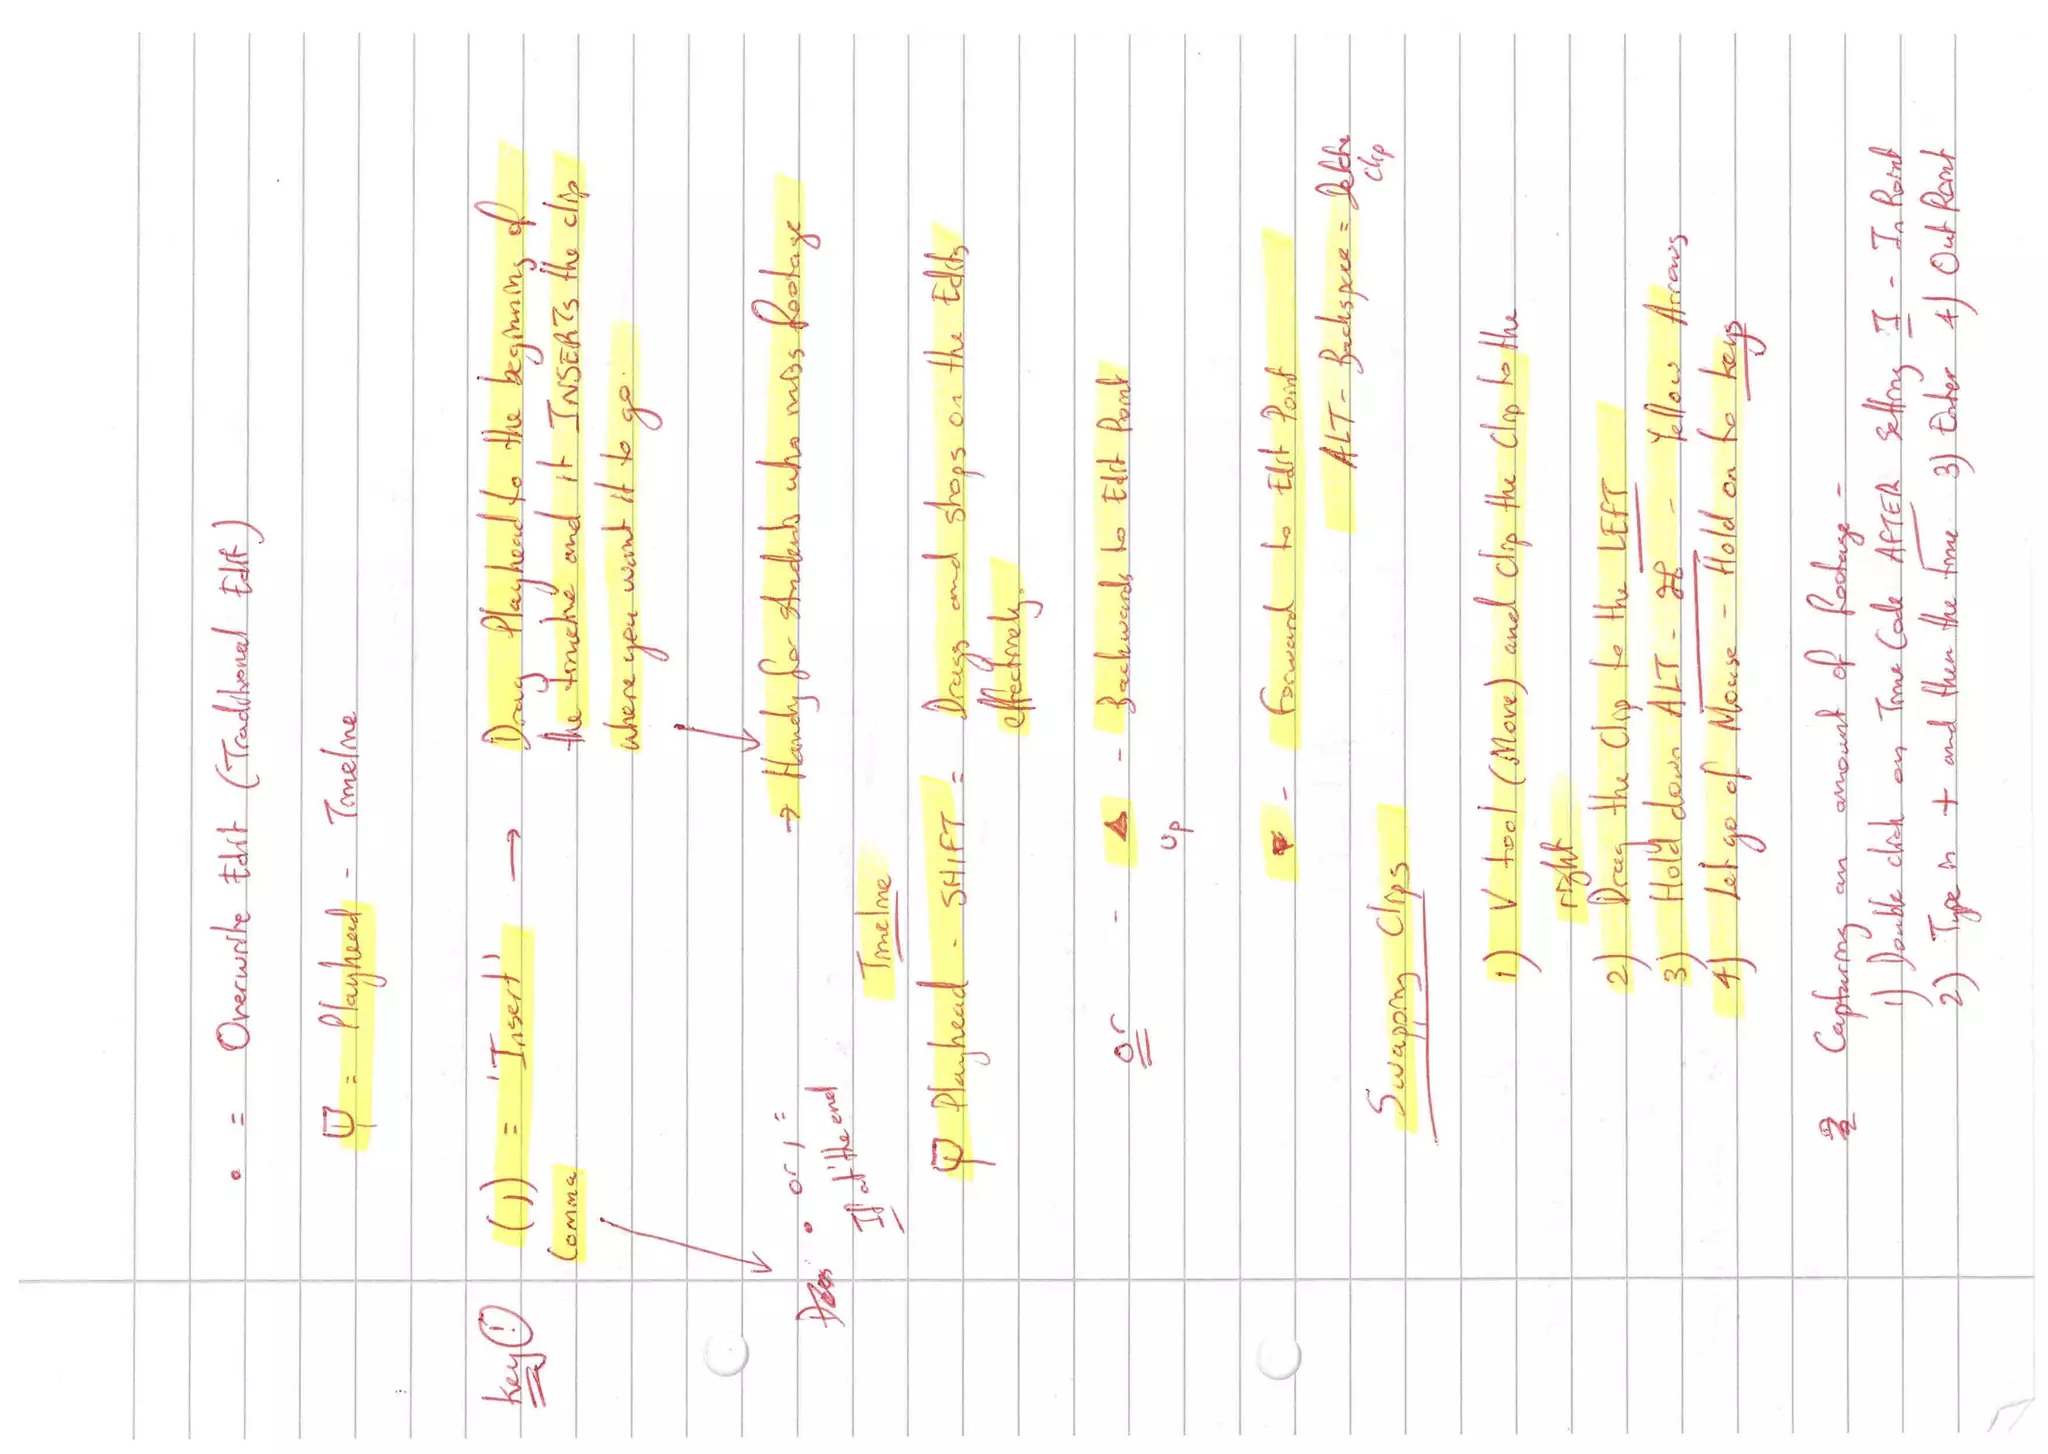 • = Overwrite Edit (Traditional Edit)
= Playhead - Timeline
key ! (,) = 'Insert' → Drag Playhead to the beginning of
Comma the timeline and it INSERTS the clip
where you want it to go.
→ Handy for students who miss footage
• or , =
If at the end
Timeline
Playhead - SHIFT = Drags and stops on the Edits
effectively.
or - ▲ - Backwards to Edit Point
Up
▼ - Forward to Edit Point
ALT - Backspace = Delete
Clip
Swapping Clips
1) V tool (Move) and Clip the Clip to the
right
2) Drag the Clip to the LEFT
3) Hold down ALT - ⌘ - Yellow Arrows
4) Let go of Mouse - Hold on to keys
Capturing an amount of footage -
1) Double click on Time Code AFTER setting I - In Point
2) Type in + and then the time 3) Enter 4) Out Point